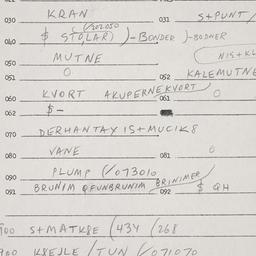 030 KRAN 031 S+PUNT/
(/202050
040 $ STOLAR) )-BONDER )-BODNER
050 MUTNE
051 0 052 KALEMUTNE
060 KVORT AKUPERNEKVORT 061 0
062 $-
070 DERHANTAX IS+MUCIK8
080 VANE 081 0
090 PLUMP (/073010
091 BRUNIM QFUNBRUNIM BRINIMER 092 $ QH
900 S+MATK8E (434 (268
900 K8EJLE /TUN (/071070